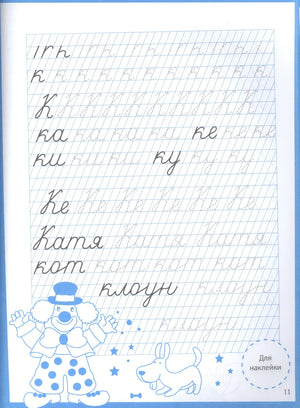 к к к к к к к к к к
К К К К К К К К К
ка ка ка ка ке ке ке
ки ки ки ку ку ку
Ке Ке Ке Ке Ке Ке
Катя Катя Катя
кот кот кот кот
клоун клоун
клоун
Для
наклейки
11